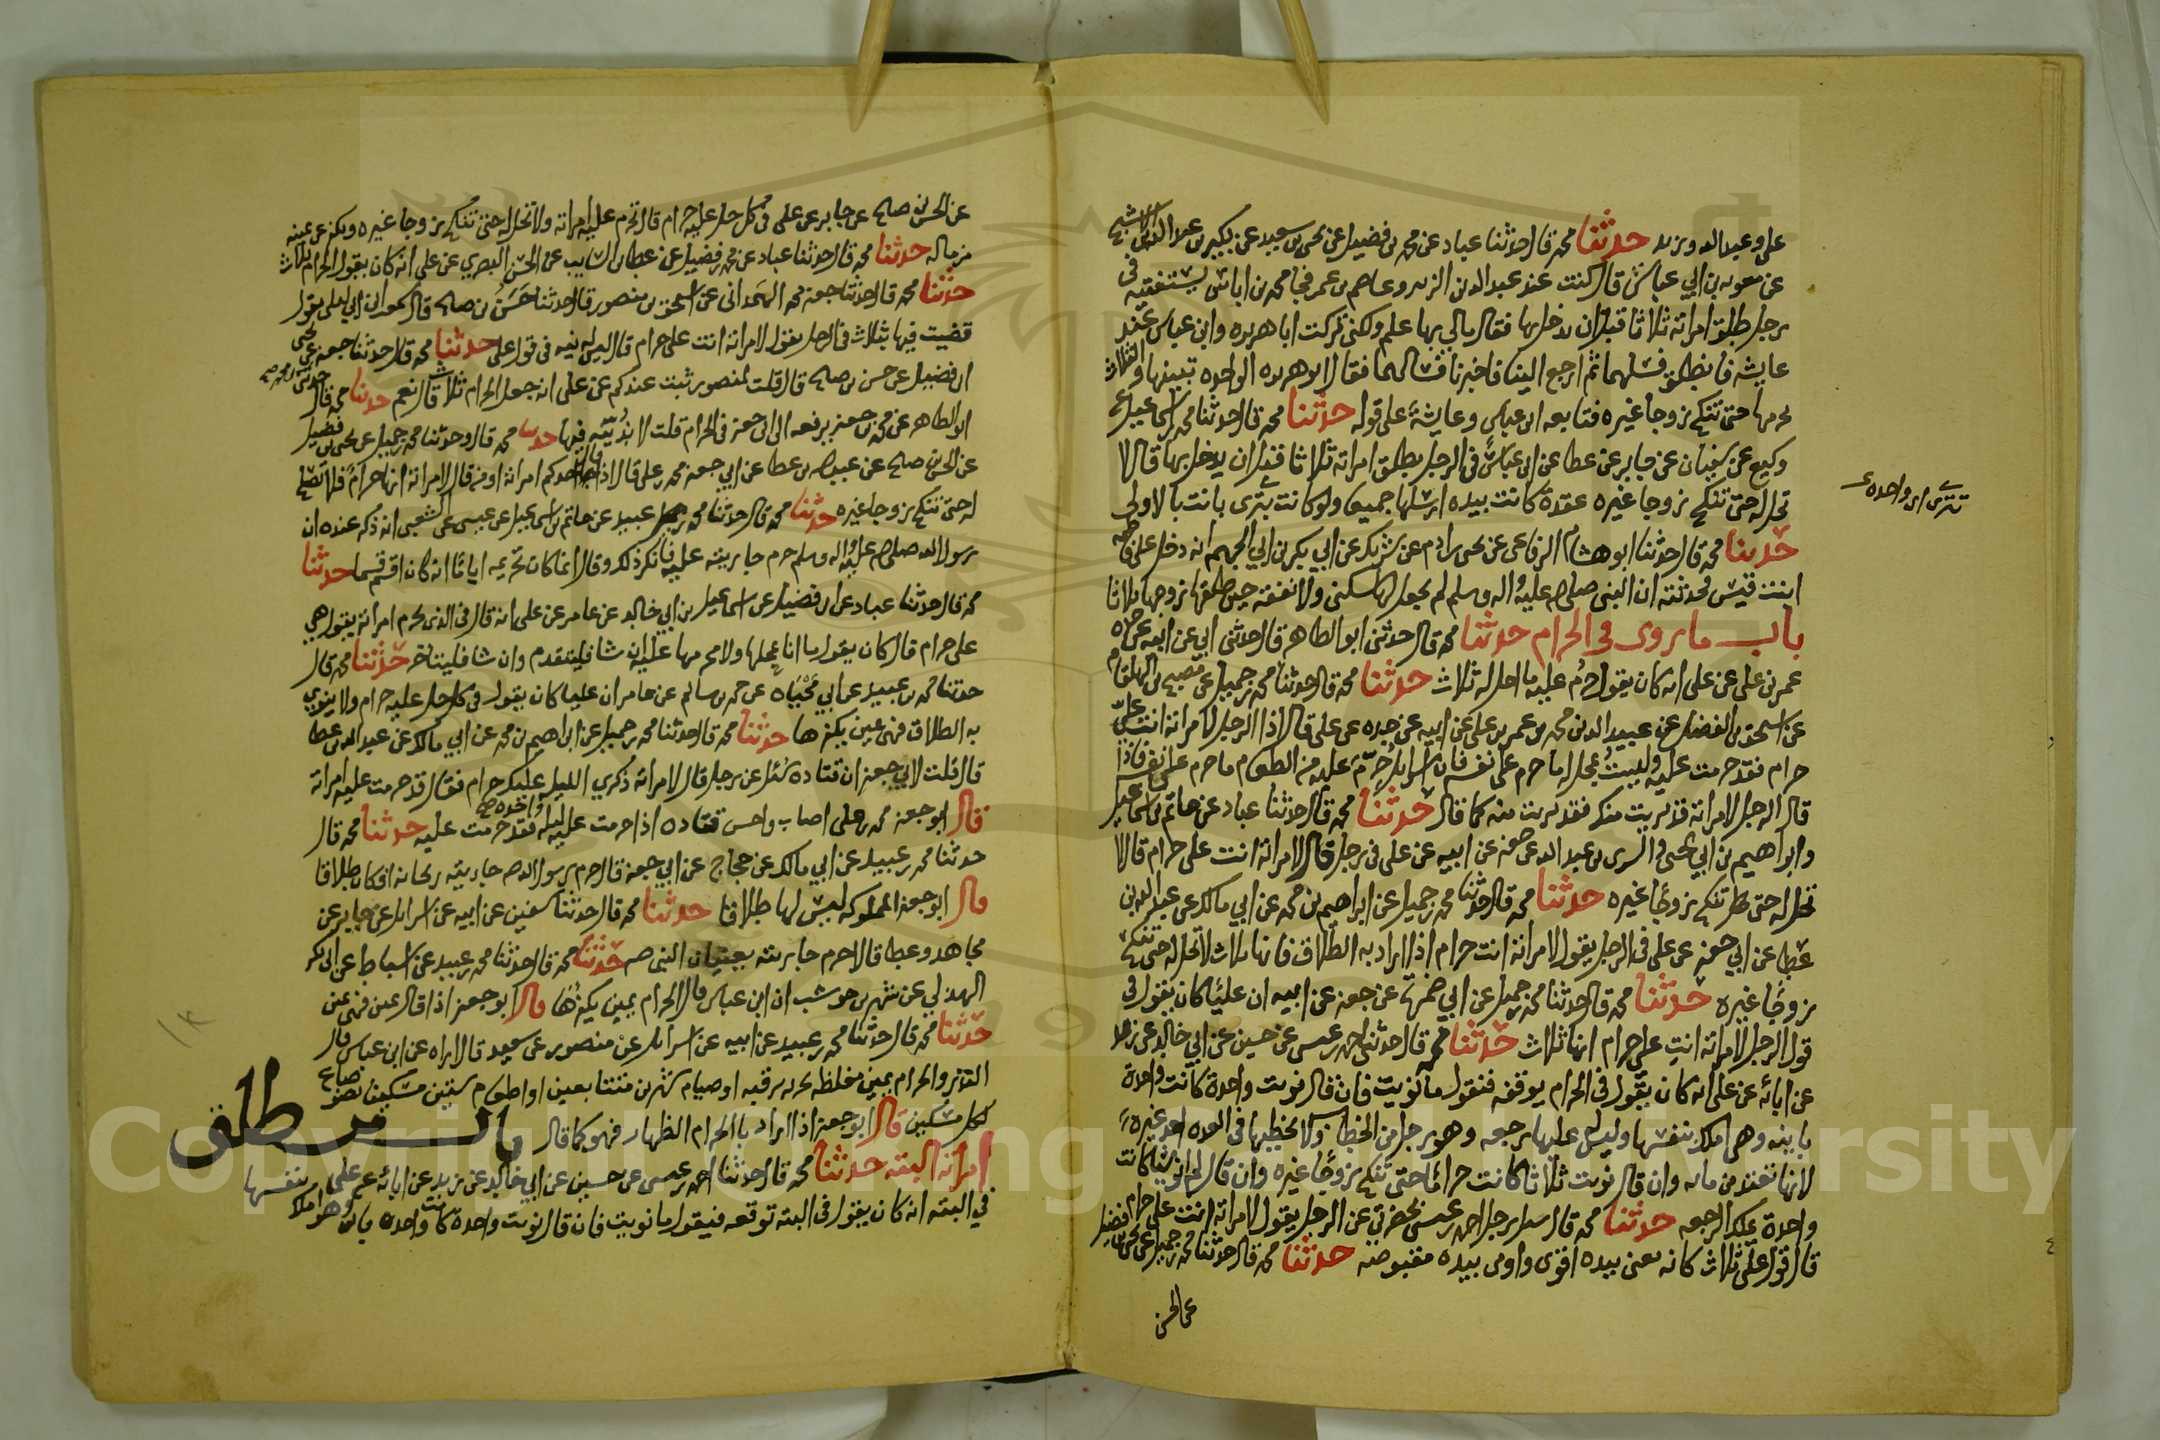 علي وعبدالله وزيد حدثنا محمد قال حدثنا عباد عن محمد بن فضيل عن يحيى بن سعيد عن بكير بن عبدالله بن الاشج
عن معويه بن ابي عياش قال كنت عند عبدالله بن الزبير وعاصم بن عمر فجا محمد بن اياس يستفتيه في
رجل طلق امراته ثلاثا قبل ان يدخل بها فقال مالي بها علم ولكني تركت ابا هريره وابن عباس عند
عايشه فانطلق فسلهما ثم ارجع الينا فاخبرنا فسالهما فقال ابو هريره الواحده تبينها والثلاث
تحرمها حتى تنكح زوجا غيره فتابعه ابن عباس وعايشة على قوله حدثنا محمد قال حدثنا محمد بن اسماعيل عن
وكيع عن سفيان عن جابر عن عطا عن ابن عباس في الرجل يطلق امراته ثلاثا قبل ان يدخل بها قال لا
تحل له حتى تنكح زوجا غيره عقدة كانت بيده ارسلها جميعا ولو كانت تترى بانت بالاولى
تترى اي واحده
حدثنا محمد قال حدثنا ابو هشام الرفاعي عن يحيى بن ادم عن شريك عن ابي بكر بن ابي الجهم انه دخل على فاطمه
ابنت قيس فحدثته ان النبي صلى الله عليه واله وسلم لم يجعل لها سكنى ولا نفقه حين طلقها زوجها ثلاثا
باب ما روى في الحرام حدثنا محمد قال حدثني ابو الطاهر قال حدثني ابي عن ابيه عن جده
عمر بن علي عن علي انه كان يقول حرم عليه ما احل له ثلاث حدثنا محمد قال حدثنا محمد بن جميل عن مصبح بن الهلقام
عن اسحق بن الفضل عن عبيدالله بن محمد بن عمر بن علي عن ابيه عن جده عن علي قال اذا قال الرجل لامراته انت علي
حرام فقد حرمت عليه وليست تحل ما حرم على نفسه فان اسرائيل حرم عليه من الطعام ما حرم على نفسه فاذا
قال الرجل لامراته قد بريت منك فقد بريت منه كما قال حدثنا محمد قال حدثنا عباد عن حاتم بن اسماعيل
وابراهيم بن ابي يحيى والسري بن عبدالله عن جعفر عن ابيه عن علي في رجل قال لامراته انت علي حرام قال لا
تحل له حتى تنكح زوجا غيره حدثنا محمد قال حدثنا محمد بن جميل عن ابراهيم بن محمد عن ابي مالك عن عبدالله بن
عطا عن ابي جعفر عن علي في الرجل يقول لامراته انت حرام اذا اراد به الطلاق فانها ثلاث لا تحل له حتى تنكح
زوجا غيره حدثنا محمد قال حدثنا محمد بن جميل عن ابي ضمره عن جعفر عن ابيه ان عليا كان يقول في
قول الرجل لامراته انت علي حرام انها ثلاث حدثنا محمد قال حدثنا احمد بن عيسى عن حسين عن ابي خالد عن زيد
عن ابائه عن علي انه كان يقول في الحرام يوقفه فنقول ما نويت فان قال نويت واحدة كانت واحدة
باينه وهي املك بنفسها وليس له عليها رجعه وهو رجل من الخطاب ولا يخطبها في العده احد غيره
لانها تعتد من مائه وان قال نويت ثلاثا كانت حراما حتى تنكح زوجا غيره وان قال لم انو شيئا كانت
واحدة يملك الرجعه حدثنا محمد قال سال رجل احمد بن عيسى بحضرتي عن الرجل يقول لامراته انت علي حرام
قال قول علي ثلاث كانه يعني بيده اقوى واومى بيده مقبوضه حدثنا محمد قال حدثنا محمد بن جميل عن يحيى بن فضيل
عن الحسن
عن الحسن بن صلح عن جابر عن علي في كل حل علي حرام قال تحرم عليه امراته ولا تحل له حتى تنكح زوجا غيره ويكفر عن يمينه
من ماله حدثنا محمد قال حدثنا عباد عن محمد بن فضيل عن عطا بن السايب عن الحسن البصري عن علي انه كان يقول الحرام ثلاث
حدثنا محمد قال حدثنا جعفر بن محمد الهمداني عن اسحق بن منصور قال حدثنا حسن بن صلح قال سمعت ابن ابي ليلى يقول
قضيت فيها بثلاث في الرجل يقول لامراته انت علي حرام قال ليس له نيه في قول علي حدثنا محمد قال حدثنا جعفر عن يحيى
ابن فضيل عن حسن بن صلح قال قلت لمنصور ثبت عندكم عن علي انه جعل الحرام ثلاث قال نعم حدثنا محمد قال
ابو الطاهر عن محمد بن جعفر يرفعه الى ابي جعفر في الحرام قلت لا نديته فيها حدثنا محمد قال وحدثنا محمد بن جميل عن يحيى بن فضيل
عن الحسن بن صلح عن عبدالله بن عطا عن ابي جعفر محمد بن علي قال اذا احدكم امراته او قال لامراته انها حرام فلا تصلح
له حتى تنكح زوجا غيره حدثنا محمد قال حدثنا محمد بن عبيد عن حاتم بن اسماعيل عن عيسى عن الشعبي انه ذكر عنده ان
رسول الله صلى الله عليه واله وسلم حرم جاريته عليه فانكر ذلك وقال انما كان تحريمه اياها انه كان اقسم قسما حدثنا
محمد قال حدثنا عباد عن ابن فضيل عن اسماعيل بن ابي خالد عن عامر عن علي انه قال في الذي يحرم امراته يقول هي
علي حرام قال كان يقول ما انا بمحلها ولا محرمها عليه ان شا فليتقدم وان شا فليتاخر حدثنا محمد قال
حدثنا محمد بن عبيد عن ابي محياه عن محمد بن سالم عن عامر ان عليا كان يقول في كل حل عليه حرام ولا ينوي
به الطلاق فهي يمين يكفرها حدثنا محمد قال حدثنا محمد بن جميل عن ابراهيم بن محمد عن ابي مالك عن عبدالله بن عطا
قال قلت لابي جعفر ان قتاده سئل عن رجل قال لامراته ذكري الليل عليك حرام فقال قد حرمت عليه امراته
فقال ابو جعفر محمد بن علي اصاب واحسن قتاده اذا حرمت عليه ليله واحده فقد حرمت عليه حدثنا محمد قال
حدثنا محمد بن عبيد عن ابي مالك عن حجاج عن ابي جعفر قال حرم رسول الله صم جاريته ريحانه افكان طلاقا
قال ابو جعفر المملوكه ليس لها طلاقا حدثنا محمد قال حدثنا سفين عن ابيه عن اسرائيل عن جابر عن
مجاهد وعطا قالا حرم جاريته يعنيان النبي صم حدثنا محمد قال حدثنا محمد بن عبيد عن اسباط عن ابي بكر
الهذلي عن شهر بن حوشب ان ابن عباس قال الحرام يمين يكفرها قال ابو جعفر اذا قال يمين فهي يمين
حدثنا محمد قال حدثنا محمد بن عبيد عن ابيه عن اسرائيل عن منصور عن سعيد قال اراه عن ابن عباس قال
النذر والحرام يمين مغلظه تحرير رقبه او صيام شهرين متتابعين او اطعام ستين مسكينا نصف صاع
لكل مسكين قال ابو جعفر اذا اراد بالحرام الظهار فهو كما قال باب من طلق
امراته البته حدثنا محمد قال حدثنا احمد بن عيسى عن حسين عن ابي خالد عن زيد عن ابائه عن علي
في البته انه كان يقول في البته توقفه فيقول ما نويت فان قال نويت واحدة كانت واحدة باين وهو املك بنفسها
Copyright © King Saud University